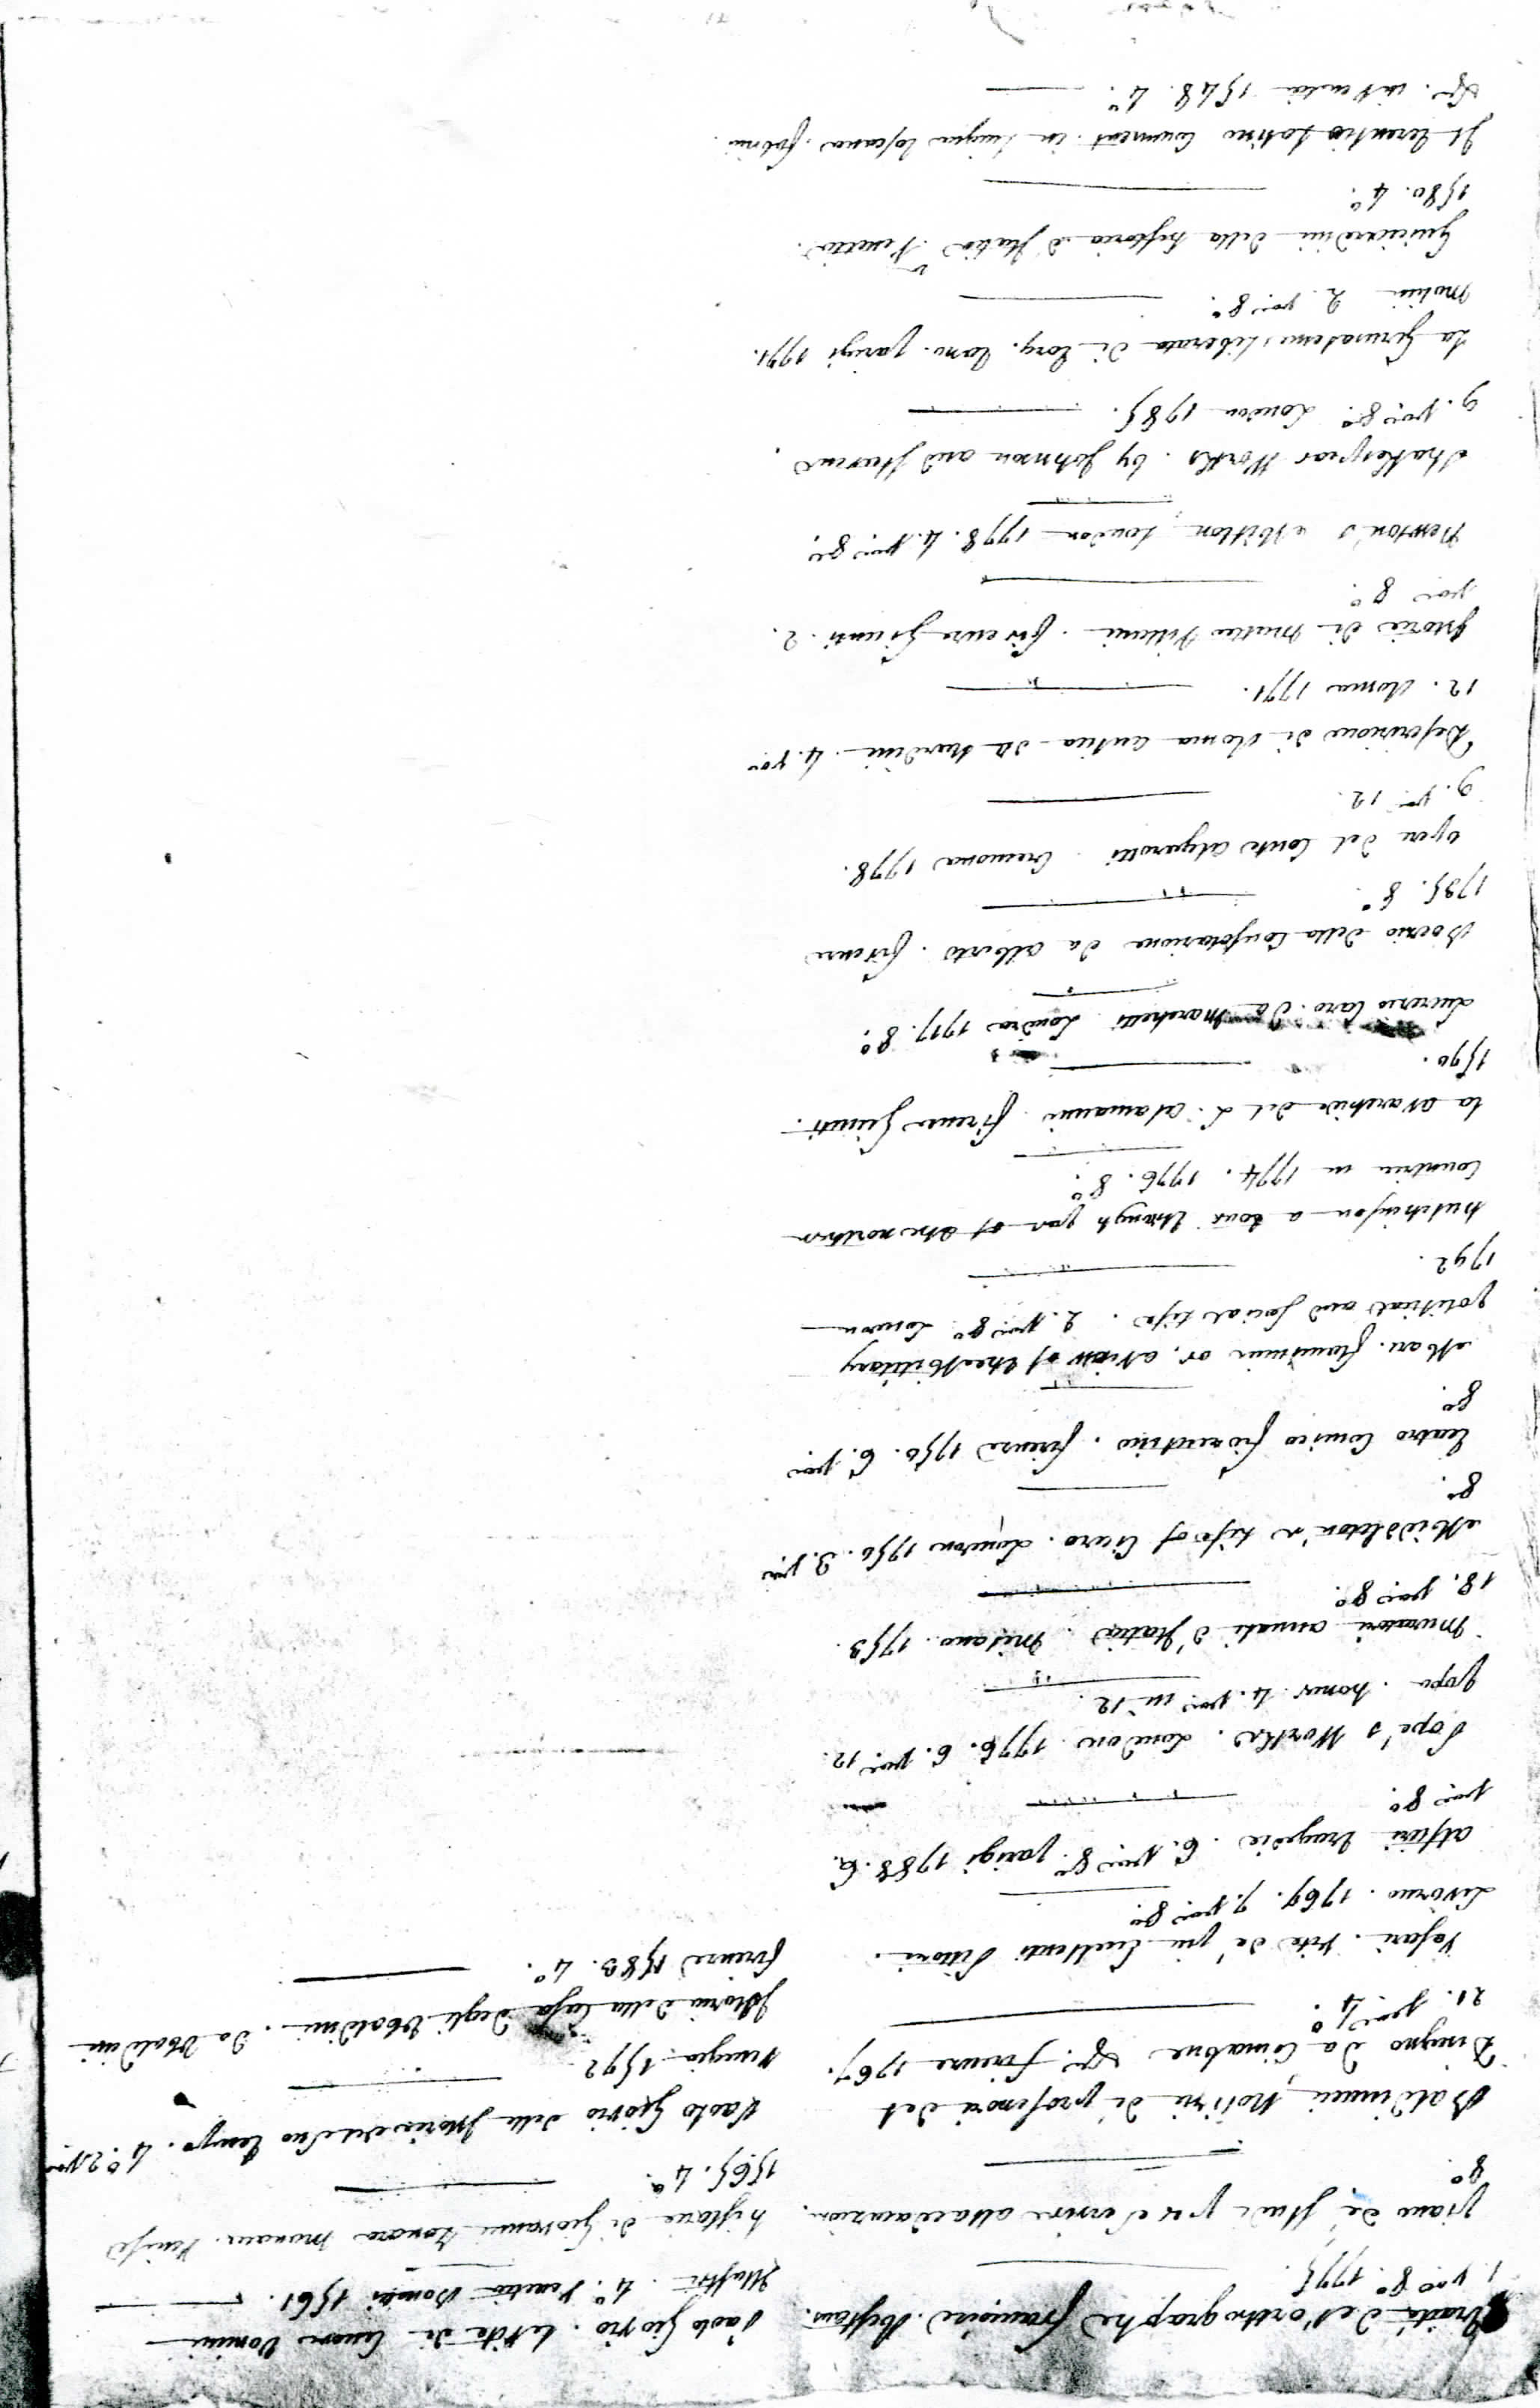 Traité de l'orthographe françoise. Restaut.
1. voe 8º. 1775.
piano de' studi per servire alla educazion.
8º.
Baldinucci Notizie di professori del
Disegno da Cimabue &c. firenze 1767.
21. voe 4º.
Vasari. vite de' piu Eccellenti Pittori.
Livorno. 1767. 7. voe 8º.
alfieri tragedie. 6. voe 8º. parigi 1788. 6.
voe 8º
Pope's Works. London. 1776. 6. voe 12.
pope. homer. 4. voe in 12.
Muratori annali d'Italia. Milano. 1753.
18. voe 8º.
Middleton's life of Cicero. London 1750. 3. voe
8º.
Teatro Comico fiorentino. firenze 1750. 6. voe
8º.
Mar. flaminius or, a View of the Military
political and social life. 2. voe 8º London
1792.
Hutchinson a tour through par of the northrn
Countries in 1774. 1776. 8º.
la Avarchide del L. Alamanni. firenze Giunti.
1570.
Lucrezio Caro. da Marchetti. Londra 1717. 8º.
Boezio della Consolazione da Alberto. firenze
1735. 8º.
opere del Conte Algarotti. Cremona 1778.
9. voe 12.
Descrizione di Roma antica da Nardini. 4. voe
12. Roma 1771.
Istorie di Matteo Villani. firenze Giunti. 2.
voe 8º
Newton's Milton London 1778. 4. voe 8º.
Shakespear Works. by Johnson and Stevens.
9. voe 8º. London 1785.
La Gerusalemme Liberata di Torq. Tasso. parigi 1771.
Molini 2. voe 8º.
Guicciardini della historia d'Italia. Venetia.
1580. 4º.
Il Terentio Latino comment. in lingua toscana. fabrini
&c. in Venetia 1548. 4º.
Paolo Giovio. le Vite di Huomini
Illustri. 4º. Venetia 1561.
historie di Giovanni Zonara monaco. Venesia
1565. 4º.
Paolo Giovio delle Istorie del suo tempo. 4º 2 voe
Venegia. 1572
Istoria della Casa degli Ubaldini. da Ubaldini
firenze 1588. 4º.